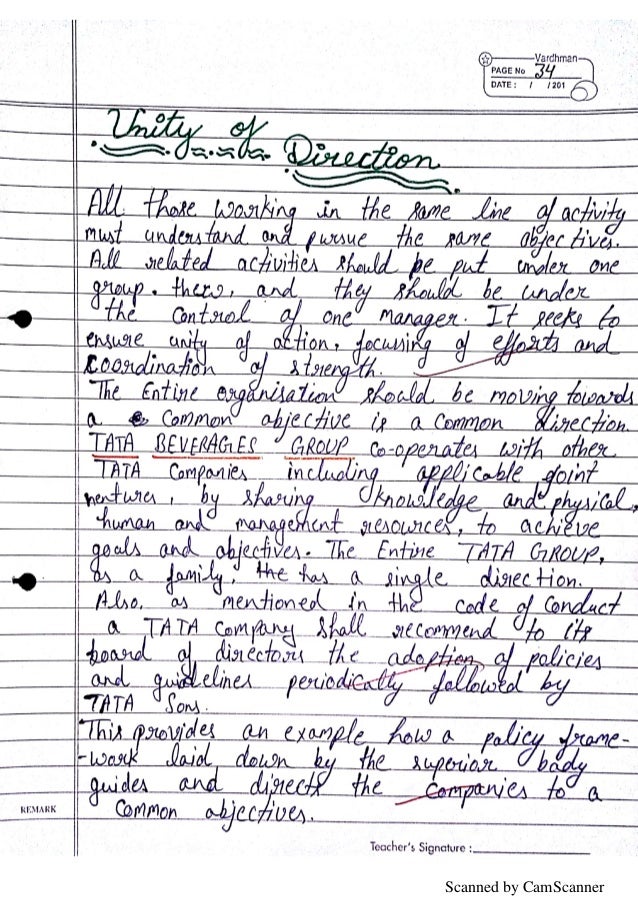 Vardhman
PAGE No 34
DATE : / /201
Unity of
Direction
All those working in the same line of activity
must understand and pursue the same objectives.
All related activities should be put under one
group. there, and they should be under
the control of one manager. It seeks to
ensure unity of action, focussing of efforts and
Coordination of strength.
The Entire organisation should be moving towards
a common objective is a common direction
TATA BEVERAGES GROUP co-operates with other
TATA Companies including applicable joint
ventures, by sharing knowledge and physical,
human and management resources, to achieve
goals and objectives. The Entire TATA GROUP,
as a family, the has a single direction.
Also, as mentioned in the code of conduct
a TATA Company shall recommend to its
board of directors the adoption of policies
and guidelines periodically followed by
TATA Sons.
This provides an example how a policy frame-
-work laid down by the superior body
guides and directs the companies to a
Common objectives.
REMARK
Teacher's Signature :
Scanned by CamScanner